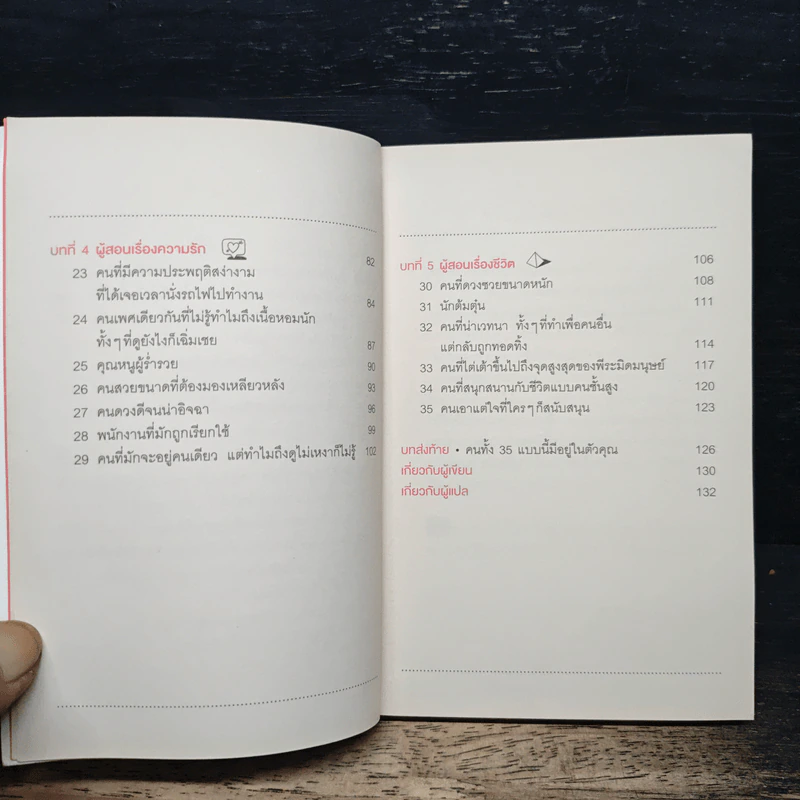 บทที่ 4 ผู้สอนเรื่องความรัก 82
23 คนที่มีความประพฤติสง่างาม
ที่ได้เจอเวลานั่งรถไฟไปทำงาน 84
24 คนเพศเดียวกันที่ไม่รู้ทำไมถึงเนื้อหอมนัก
ทั้งๆที่ดูยังไงก็เฉิ่มเชย 87
25 คุณหนูผู้ร่ำรวย 90
26 คนสวยขนาดที่ต้องมองเหลียวหลัง 93
27 คนดวงดีจนน่าอิจฉา 96
28 พนักงานที่มักถูกเรียกใช้ 99
29 คนที่มักจะอยู่คนเดียว แต่ทำไมถึงดูไม่เหงาก็ไม่รู้ 102
บทที่ 5 ผู้สอนเรื่องชีวิต 106
30 คนที่ดวงซวยขนาดหนัก 108
31 นักต้มตุ๋น 111
32 คนที่น่าเวทนา ทั้งๆที่ทำเพื่อคนอื่น
แต่กลับถูกทอดทิ้ง 114
33 คนที่ไต่เต้าขึ้นไปถึงจุดสูงสุดของพีระมิดมนุษย์ 117
34 คนที่สนุกสนานกับชีวิตแบบคนชั้นสูง 120
35 คนเอาแต่ใจที่ใครๆก็สนับสนุน 123
บทส่งท้าย • คนทั้ง 35 แบบนี้มีอยู่ในตัวคุณ 126
เกี่ยวกับผู้เขียน 130
เกี่ยวกับผู้แปล 132